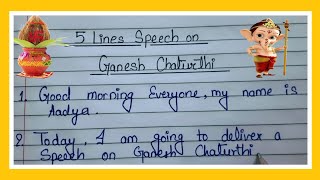 5 Lines Speech on
Ganesh Chaturthi
1. Good morning Everyone, my name is
Aadya.
2. Today, I am going to deliver a
Speech on Ganesh Chaturthi.